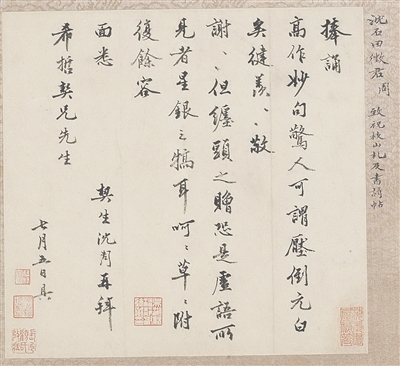 沈石田徵君周
致祝枝山札
捧誦
高作妙句驚人可謂壓倒元白
矣健羨々敬
謝々但纏頭之贈恐是虛語所
見者星銀之犒耳呵々草々附
復餘容
面悉 契生沈周再拜
希哲契兄先生
七月五日具